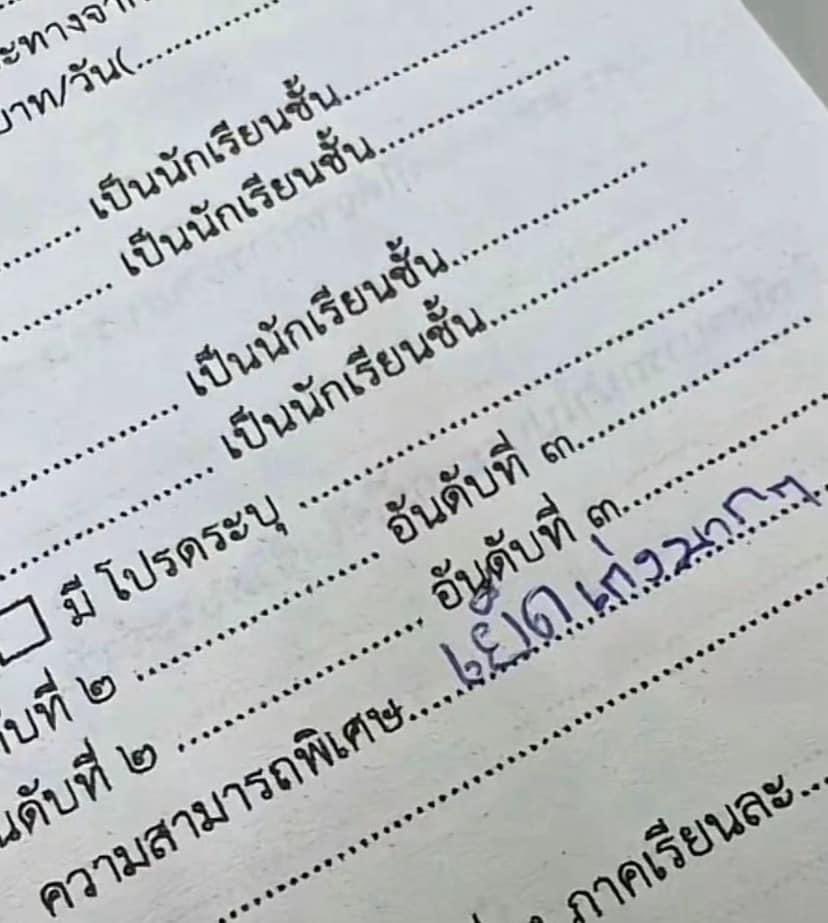 ะทางจาก
บาท/วัน(....................
.......... เป็นนักเรียนชั้น....................
.......... เป็นนักเรียนชั้น....................
.......... เป็นนักเรียนชั้น....................
.......... เป็นนักเรียนชั้น....................
มี โปรดระบุ ....................
ับที่ ๒ .................... อันดับที่ ๓....................
นดับที่ ๒ .................... อันดับที่ ๓....................
ความสามารถพิเศษ.... เย็ดเก่งมากๆ
....................
ภาคเรียนละ...